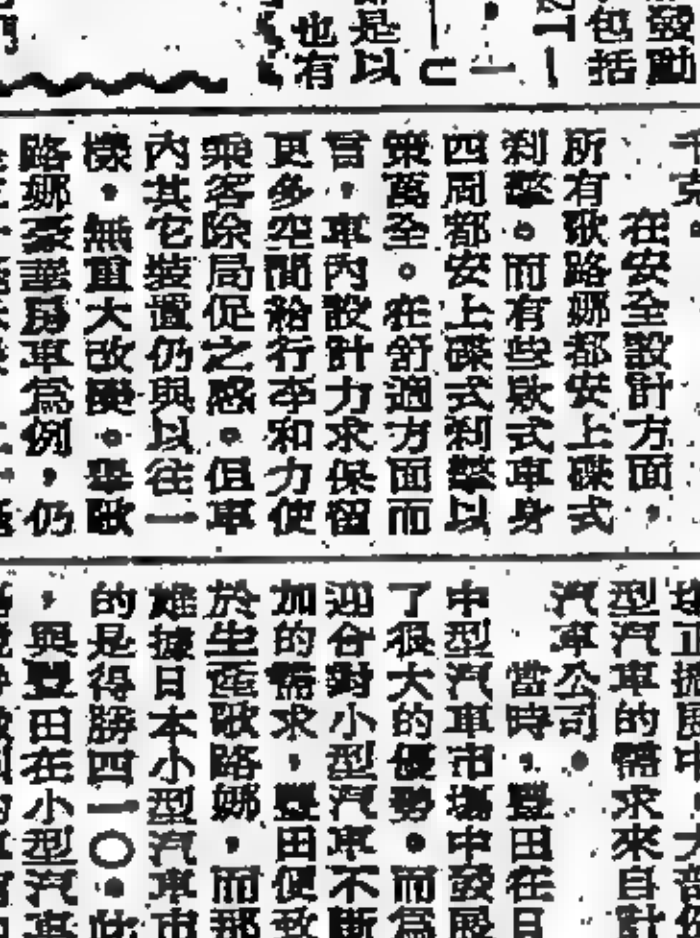 發動
包括
是以
也有
千克。
在安全設計方面，
所有歌路娜都安上碟式
刹掣。而有些款式車身
四周都安上碟式刹掣以
策萬全。在舒適方面而
言，車內設計力求保留
更多空間給行李和力使
乘客除局促之感。但車
內其它裝置仍與以往一
樣，無重大改變。舉歌
路娜豪華房車爲例，仍
型汽車的需求來自計
汽車公司。
當時，豐田在日
中型汽車市場中發展
了很大的優勢。而爲
迎合對小型汽車不斷
加的需求，豐田便致
於生產歌路娜，而那
難據日本小型汽車市
的是得勝四一〇。此
，與豐田在小型汽車